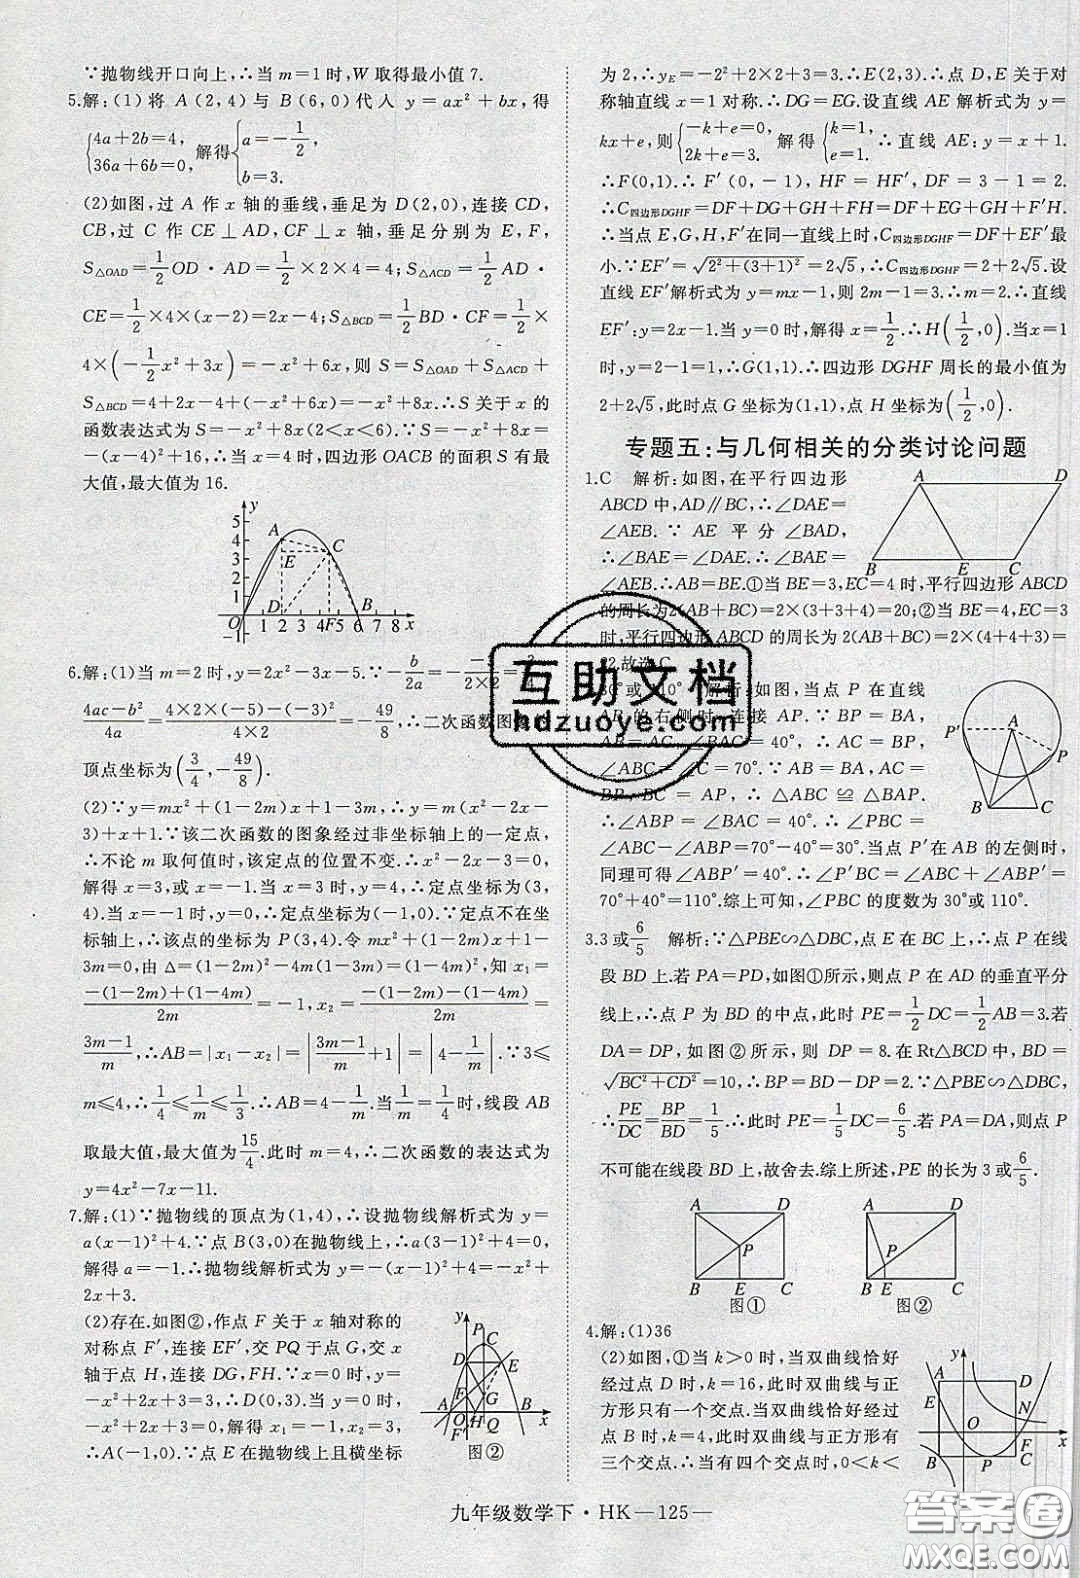 ∵抛物线开口向上,∴当 m=1时,W 取得最小值 7.
5.解:(1)将 A(2,4)与 B(6,0)代入 y=ax²+bx,得
{4a+2b=4, 36a+6b=0, 解得{a=-1/2, b=3.
(2)如图,过 A 作 x 轴的垂线,垂足为 D(2,0),连接 CD,
CB,过 C 作 CE⊥AD,CF⊥x 轴,垂足分别为 E,F,
S△OAD=1/2 OD·AD=1/2×2×4=4;S△ACD=1/2 AD·
CE=1/2×4×(x-2)=2x-4;S△BCD=1/2 BD·CF=1/2×
4×(-1/2x²+3x)=-x²+6x,则 S=S△OAD+S△ACD+
S△BCD=4+2x-4+(-x²+6x)=-x²+8x.∴S 关于 x 的
函数表达式为 S=-x²+8x(2<x<6).∵S=-x²+8x=
-(x-4)²+16,∴当 x=4时,四边形 OACB 的面积 S 有最
大值,最大值为 16.
y
5
4
3
2
1
-1
A
E
C
D
B
O 1 2 F 5 6 7 8 x
6.解:(1)当 m=2时,y=2x²-3x-5.∵-b/2a=
(4ac-b²)/4a=(4×2×(-5)-(-3)²)/(4×2)=-49/8,∴二次函数图
顶点坐标为(3/4,-49/8).
(2)∵y=mx²+(1-2m)x+1-3m=m(x²-2x-
3)+x+1.∵该二次函数的图象经过非坐标轴上的一定点,
∴不论 m 取何值时,该定点的位置不变.∴x²-2x-3=0,
解得 x=3,或 x=-1.当 x=3时,y=4,∴定点坐标为(3,
4).当 x=-1时,y=0,∴定点坐标为(-1,0).∵定点不在坐
标轴上,∴该点的坐标为 P(3,4).令 mx²+(1-2m)x+1-
3m=0,由 Δ=(1-2m)²-4m(1-3m)=(1-4m)²,知 x₁=
(-(1-2m)+(1-4m))/2m=-1,x₂=(-(1-2m)-(1-4m))/2m=
(3m-1)/m,∴AB=|x₁-x₂|=|(3m-1)/m+1|=|4-1/m|.∵3≤
m≤4,∴1/4≤1/m≤1/3.∴AB=4-1/m.当1/m=1/4时,线段 AB
取最大值,最大值为15/4.此时 m=4,∴二次函数的表达式为
y=4x²-7x-11.
7.解:(1)∵抛物线的顶点为(1,4),∴设抛物线解析式为 y=
a(x-1)²+4.∵点 B(3,0)在抛物线上,∴a(3-1)²+4=0,
解得 a=-1.∴抛物线解析式为 y=-(x-1)²+4=-x²+
2x+3.
(2)存在.如图②,作点 F 关于 x 轴对称的
对称点 F′,连接 EF′,交 PQ 于点 G,交 x
轴于点 H,连接 DG,FH.∵抛物线 y=
-x²+2x+3,∴D(0,3).当 y=0时,
-x²+2x+3=0,解得 x₁=-1,x₂=3,
∴A(-1,0).∵点 E 在抛物线上且横坐标
y
P
C
D
E
F
G
A O H B x
F′ Q
图②
为 2,∴yE=-2²+2×2+3=3.∴E(2,3).∴点 D,E 关于对
称轴直线 x=1 对称.∴DG=EG.设直线 AE 解析式为 y=
kx+e,则{-k+e=0, 2k+e=3. 解得{k=1, e=1. ∴直线 AE:y=x+1.
∴F(0,1).∴F′(0,-1),HF=HF′,DF=3-1=2.
∴C四边形DGHF=DF+DG+GH+FH=DF+EG+GH+F′H.
∴当点 E,G,H,F′在同一直线上时,C四边形DGHF=DF+EF′最
小.∵EF′=√(2²+(3+1)²)=2√5,∴C四边形DGHF=2+2√5.设
直线 EF′解析式为 y=mx-1,则 2m-1=3.∴m=2.∴直线
EF′:y=2x-1.当 y=0时,解得 x=1/2.∴H(1/2,0).当 x=1
时,y=2-1=1,∴G(1,1).∴四边形 DGHF 周长的最小值为
2+2√5,此时点 G 坐标为(1,1),点 H 坐标为(1/2,0).
专题五:与几何相关的分类讨论问题
1.C 解析:如图,在平行四边形
ABCD 中,AD∥BC,∴∠DAE=
∠AEB.∵AE 平分∠BAD,
∴∠BAE=∠DAE.∴∠BAE=
∠AEB.∴AB=BE.①当 BE=3,EC=4时,平行四边形 ABCD
的周长为2(AB+BC)=2×(3+3+4)=20;②当 BE=4,EC=3
时,平行四边形 ABCD 的周长为 2(AB+BC)=2×(4+4+3)=
22.故选 C.
A D
B E C
30°或 110° 解析:如图,当点 P 在直线
AB 的右侧时,连接 AP.∵BP=BA,
AB=AC,∠BAC=40°,∴AC=BP,
∠ABC=∠C=70°.∵AB=BA,AC=
BP,BC=AP,∴△ABC≌△BAP.
∴∠ABP=∠BAC=40°.∴∠PBC=
∠ABC-∠ABP=70°-40°=30°.当点 P′在 AB 的左侧时,
同理可得∠ABP′=40°.∴∠P′BC=∠ABC+∠ABP′=
70°+40°=110°.综上可知,∠PBC 的度数为 30°或 110°.
P′ A
P
B C
3.3或6/5 解析:∵△PBE∽△DBC,点 E 在 BC 上,∴点 P 在线
段 BD 上.若 PA=PD,如图①所示,则点 P 在 AD 的垂直平分
线上,∴点 P 为 BD 的中点,此时 PE=1/2DC=1/2AB=3.若
DA=DP,如图②所示,则 DP=8.在Rt△BCD中,BD=
√(BC²+CD²)=10,∴BP=BD-DP=2.∵△PBE∽△DBC,
∴PE/DC=BP/BD=1/5.∴此时 PE=1/5DC=6/5.若 PA=DA,则点 P
不可能在线段 BD 上,故舍去.综上所述,PE 的长为 3 或6/5.
A D
P
B E C
图①
A D
P
B E C
图②
4.解:(1)36
(2)如图,①当 k>0 时,当双曲线恰好
经过点 D 时,k=16,此时双曲线与正
方形只有一个交点.当双曲线恰好经过
点 B 时,k=4,此时双曲线与正方形有
三个交点.∴当有四个交点时,0<k<
y
A D
E N
O x
F
B P C
九年级数学下·HK—125—
互助文档
hdzuoye.com
答案圈
MXQE.COM